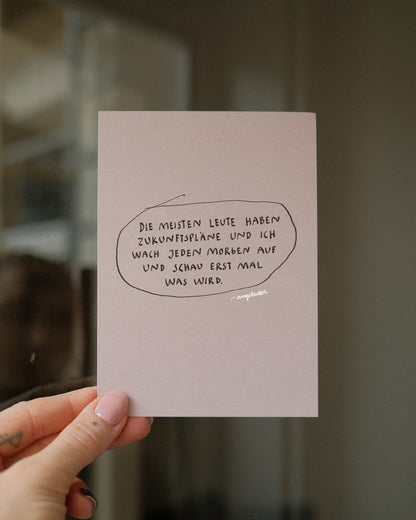 DIE MEISTEN LEUTE HABEN
ZUKUNFTSPLÄNE UND ICH
WACH JEDEN MORGEN AUF
UND SCHAU ERST MAL
WAS WIRD.